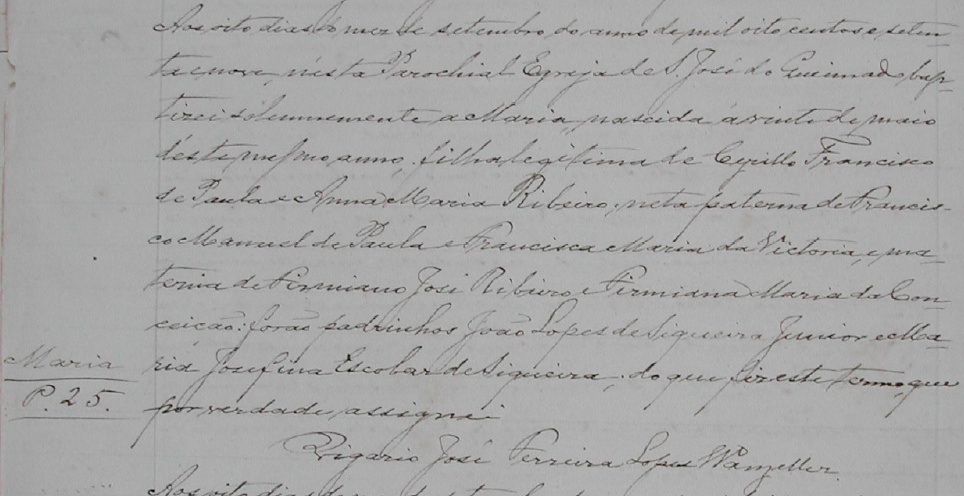 Aos oito dias do mez de setembro do anno de mil oito centos e seten-
ta e nove, n'esta Parochial Egreja de S. José do Queimado bap-
tizei solemnemente a Maria, nascida á vinte de maio
déste mesmo anno, filha legitima de Cyrillo Francisco
de Paula e Anna Maria Ribeiro, neta paterna de Francis-
co Manuel de Paula e Francisca Maria da Victoria, e ma-
terna de Firmiano José Ribeiro e Firmiana Maria da Con-
ceição: forão padrinhos João Lopes de Siqueira Junior e Ma-
Maria
ria Josefina Escobar de Siqueira; do que fiz este termo, que
P. 25.
por verdade assignei
Vigario José Ferreira Lopes Wanzeller
Aos oito dias